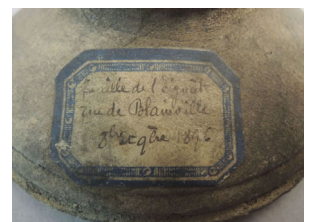 fouille de l'égout
rue de Blainville
8bre 1896